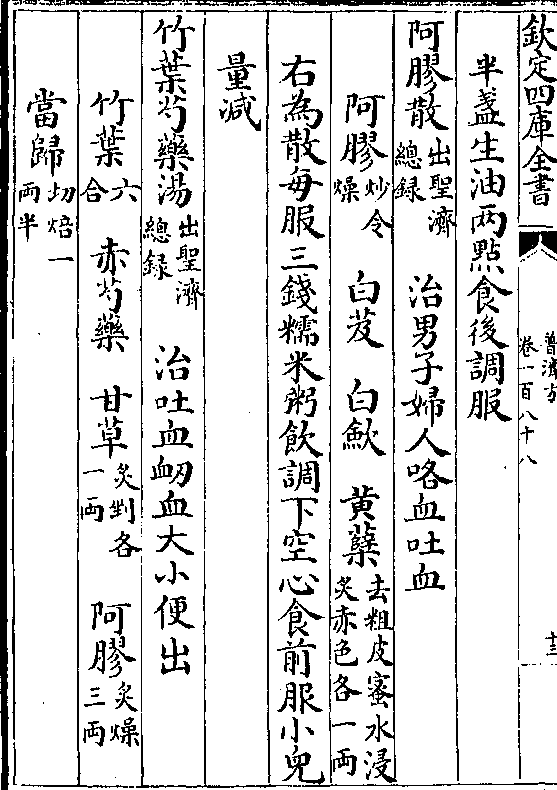 欽定四庫全書
普濟方
卷一百八十八
十三
半盞生油兩點食後調服
阿膠散出聖濟總録 治男子婦人咯血吐血
阿膠炒令燥 白芨 白歛 黄蘗去粗皮蜜水浸炙赤色各一兩
右為散每服三錢糯米粥飲調下空心食前服小兒
量減
竹葉芍藥湯出聖濟總録 治吐血衂血大小便出
竹葉六合 赤芍藥 甘草炙剉各一兩 阿膠炙燥三兩
當歸切焙一兩半